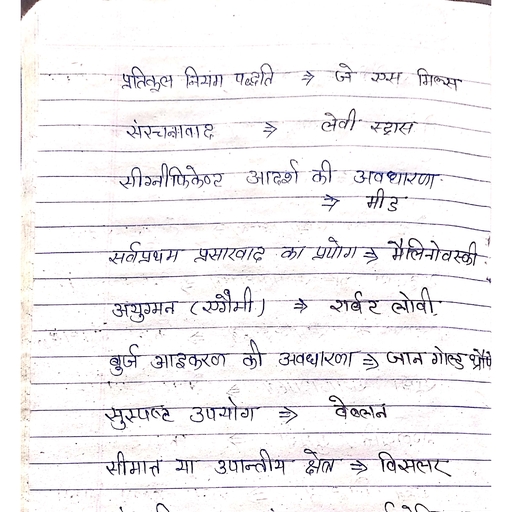 प्रतिकूल नियंग पद्धति ⇒ जे एस मिल्स
संरचनावाद ⇒ लेवी स्ट्रास
सीग्नीफिकेण्ट आदर्श की अवधारणा
⇒ मीड
सर्वप्रथम प्रसारवाद का प्रयोग ⇒ मैलिनोवस्की
अयुग्मन (एगैमी) ⇒ रार्बट लोवी
बुर्ज आइकरण की अवधारणा ⇒ जान गोल्ड थ्रौपे
सुस्पष्ट उपयोग ⇒ वेब्लन
सीमान्त या उपान्तीय क्षेत्र ⇒ विसलर